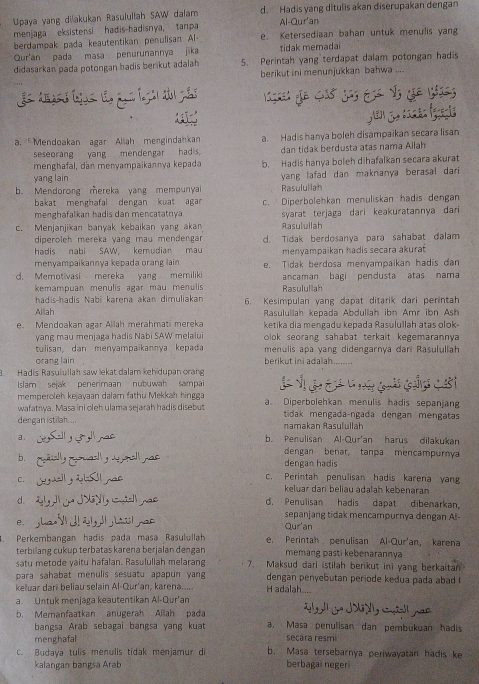 Upaya yang dilakukan Rasulullah SAW dalam
menjaga eksistensi hadis-hadisnya, tanpa
berdampak pada keautentikan penulisan Al-
Qur'an pada masa penurunannya jika
didasarkan pada potongan hadis berikut adalah
....
نَضَّرَ اللَّهُ امْرَأً سَمِعَ مِنَّا حَدِيثًا فَحَفِظَهُ حَتَّى
يُبَلِّغَهُ
a. Mendoakan agar Allah mengindahkan
seseorang yang mendengar hadis,
menghafal, dan menyampaikannya kepada
yang lain
b. Mendorong mereka yang mempunyai
bakat menghafal dengan kuat agar
menghafalkan hadis dan mencatatnya
c. Menjanjikan banyak kebaikan yang akan
diperoleh mereka yang mau mendengar
hadis nabi SAW, kemudian mau
menyampaikannya kepada orang lain
d. Memotivasi mereka yang memiliki
kemampuan menulis agar mau menulis
hadis-hadis Nabi karena akan dimuliakan
Allah
e. Mendoakan agar Allah merahmati mereka
yang mau menjaga hadis Nabi SAW melalui
tulisan, dan menyampaikannya kepada
orang lain
Hadis Rasulullah saw lekat dalam kehidupan orang
Islam sejak penerimaan nubuwah sampai
memperoleh kejayaan dalam fathu Mekkah hingga
wafatnya. Masa ini oleh ulama sejarah hadis disebut
dengan istilah ....
a. عصر الوحي و التكوين
b. عصر التجريد والتصحيح والتنقيح
c. عصر الكتابة و التدوين
d. عصر التثبت والإقلال من الرواية
e. عصر انتشار الرواية إلى الأمصار
Perkembangan hadis pada masa Rasulullah
terbilang cukup terbatas karena berjalan dengan
satu metode yaitu hafalan. Rasulullah melarang
para sahabat menulis sesuatu apapun yang
keluar dari beliau selain Al-Qur'an, karena.....
a. Untuk menjaga keautentikan Al-Qur'an
b. Memanfaatkan anugerah Allah pada
bangsa Arab sebagai bangsa yang kuat
menghafal
c. Budaya tulis menulis tidak menjamur di
kalangan bangsa Arab
d. Hadis yang ditulis akan diserupakan dengan
Al-Qur'an
e. Ketersediaan bahan untuk menulis yang
tidak memadai
5. Perintah yang terdapat dalam potongan hadis
berikut ini menunjukkan bahwa ....
وَحَدِّثُوا عَنِّي وَلَا حَرَجَ وَمَنْ كَذَبَ عَلَيَّ مُتَعَمِّدًا
فَلْيَتَبَوَّأْ مَقْعَدَهُ مِنَ النَّارِ
a. Hadis hanya boleh disampaikan secara lisan
dan tidak berdusta atas nama Allah
b. Hadis hanya boleh dihafalkan secara akurat
yang lafad dan maknanya berasal dari
Rasulullah
c. Diperbolehkan menuliskan hadis dengan
syarat terjaga dari keakuratannya dari
Rasulullah
d. Tidak berdosanya para sahabat dalam
menyampaikan hadis secara akurat
e. Tidak berdosa menyampaikan hadis dan
ancaman bagi pendusta atas nama
Rasulullah
6. Kesimpulan yang dapat ditarik dari perintah
Rasulullah kepada Abdullah Ibn Amr Ibn Ash
ketika dia mengadu kepada Rasulullah atas olok-
olok seorang sahabat terkait kegemarannya
menulis apa yang didengarnya dari Rasulullah
berikut ini adalah.........
اُكْتُبْ فَوَالَّذِي نَفْسِي بِيَدِهِ مَا خَرَجَ مِنِّي إِلَّا حَقٌّ
a. Diperbolehkan menulis hadis sepanjang
tidak mengada-ngada dengan mengatas
namakan Rasulullah
b. Penulisan Al-Qur'an harus dilakukan
dengan benar, tanpa mencampurnya
dengan hadis
c. Perintah penulisan hadis karena yang
keluar dari beliau adalah kebenaran
d. Penulisan hadis dapat dibenarkan,
sepanjang tidak mencampurnya dengan Al-
Qur'an
e. Perintah penulisan Al-Qur'an, karena
memang pasti kebenarannya
7. Maksud dari istilah berikut ini yang berkaitan
dengan penyebutan periode kedua pada abad I
H adalah....
عصر التثبت والإقلال من الرواية
a. Masa penulisan dan pembukuan hadis
secara resmi
b. Masa tersebarnya periwayatan hadis ke
berbagai negeri